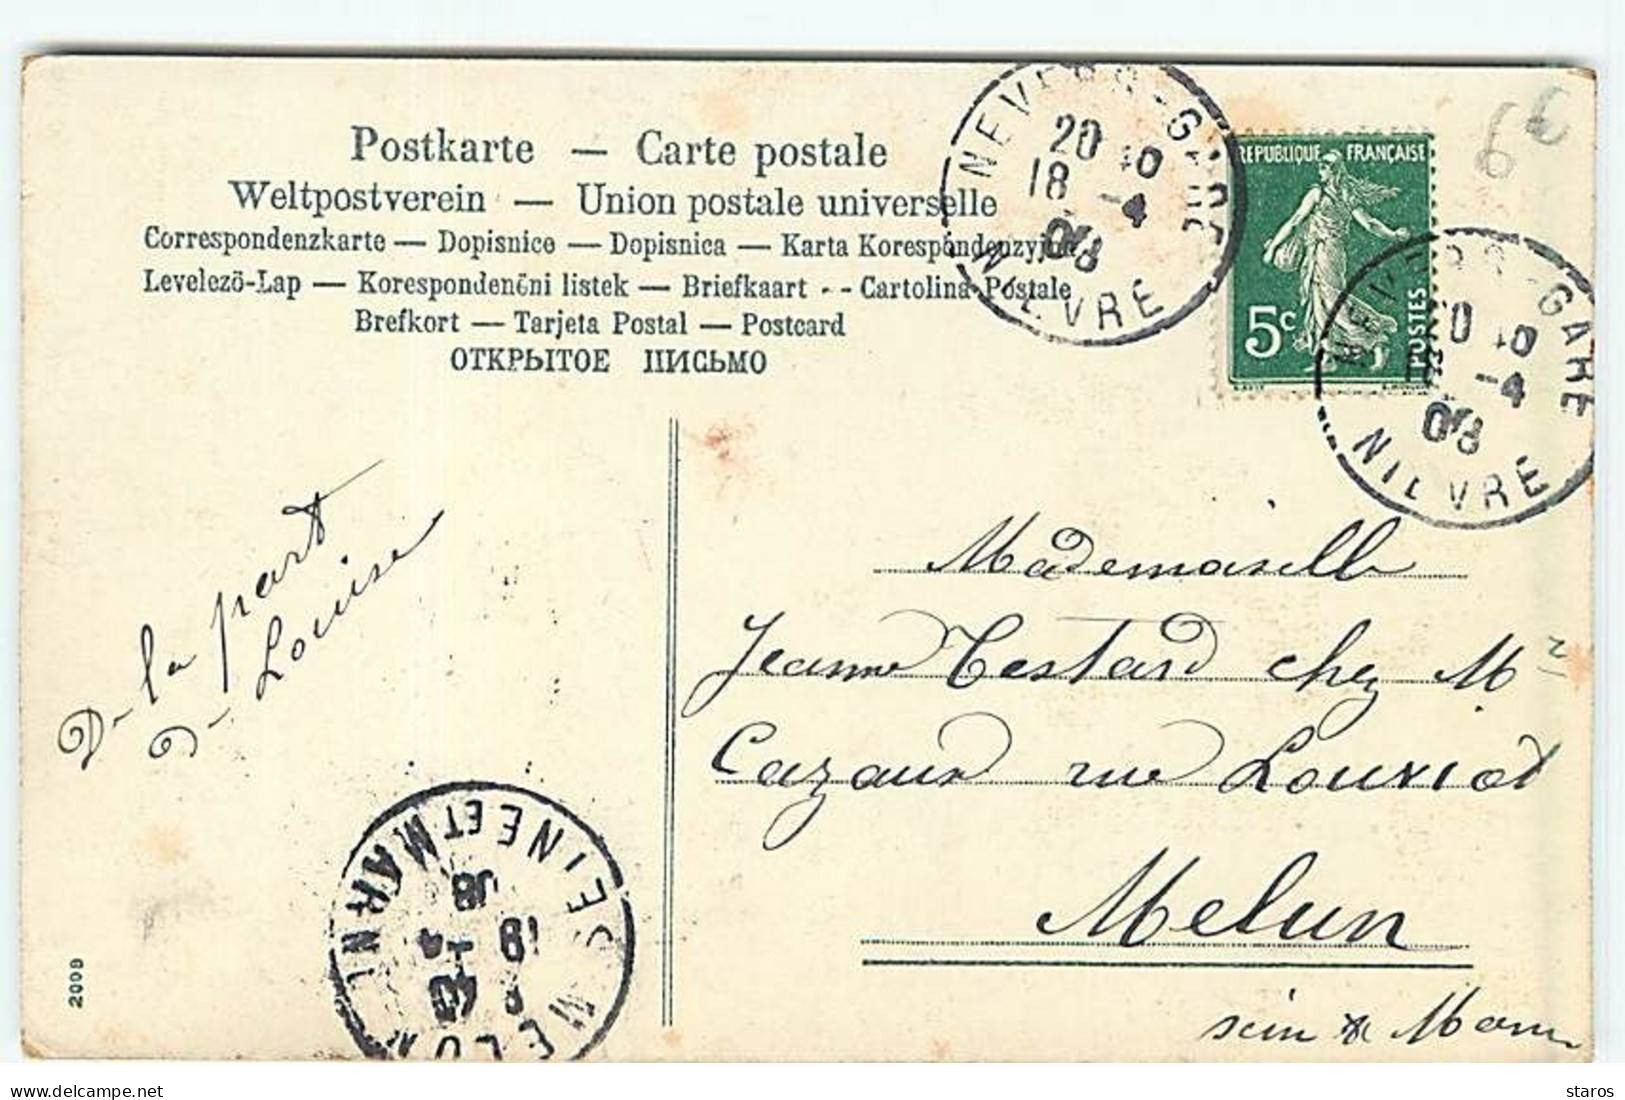 Postkarte — Carte postale
Weltpostverein — Union postale universelle
Correspondenzkarte — Dopisnice — Dopisnica — Karta Korespondenzyjna
Levelező-Lap — Korespondenčni listek — Briefkaart -- Cartolina Postale
Brefkort — Tarjeta Postal — Postcard
ОТКРЫТОЕ ПИСЬМО
NEVERS-GARE
20 40
18 -4
08
NIEVRE
REPUBLIQUE FRANÇAISE
5c
POSTES
NEVERS-GARE
20 40
18 -4
08
NIEVRE
6€
De la part
De Louise
Mademoiselle
Jeanne Testard chez Mr
Cazaux rue Louviot
Melun
sein & Marn
MELUN
SEINE ET MARNE
8 40
19 -4
08
2009
delcampe.net
staros